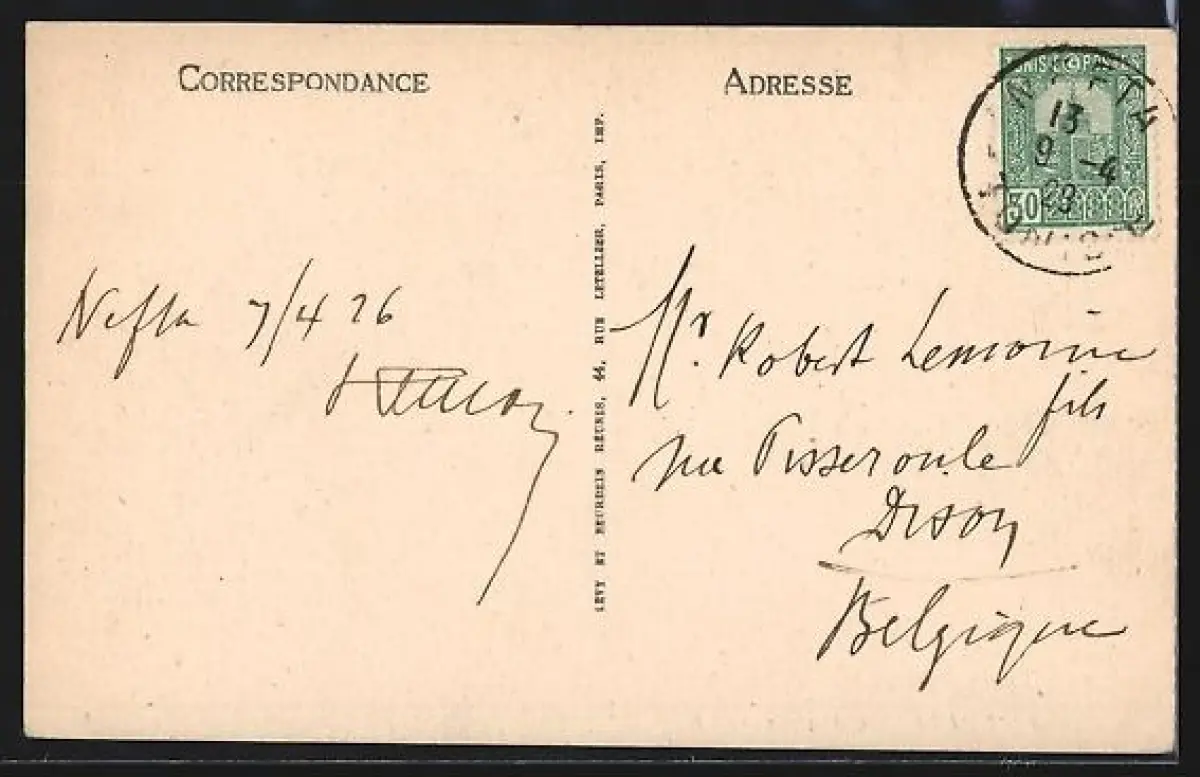 CORRESPONDANCE
ADRESSE
TUNIS POSTES
NEFTA
13
9 -4
30
Nefta 7/4 26
Mr. Robert Lemoine
fils
rue Pisseroule
Dison
Belgique
LÉVY ET NEURDEIN RÉUNIS, 44, RUE LETELLIER, PARIS, IMP.